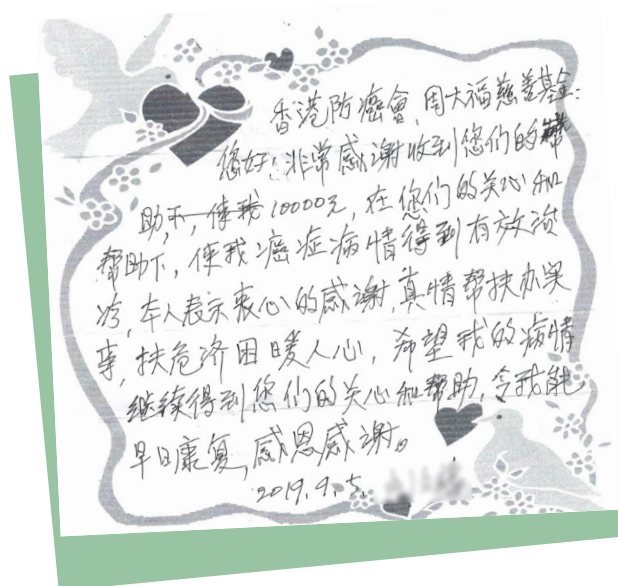 香港防癌會,周大福慈善基金:
您好!非常感谢收到您们的帮
助,10000元,在您们的关心和
帮助下,使我癌症病情得到有效治
疗,本人表示衷心的感谢,真情帮扶办实
事,扶危济困暖人心,希望我的病情
继续得到您们的关心和帮助,令我能
早日康复,感恩感谢。
2019.9.5.